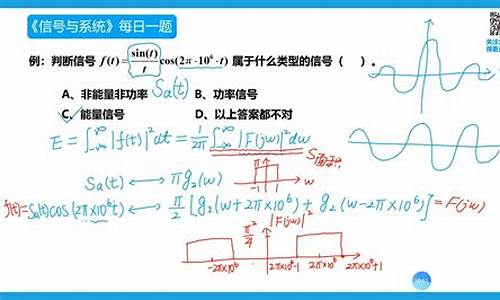 《信号与系统》每日一题
关注
例：判断信号 f(t)=sin(t)/t cos(2π·10⁶·t) 属于什么类型的信号（ ）。
A、非能量非功率 Sa(t) B、功率信号
C、能量信号 D、以上答案都不对
E=∫_{-∞}^{∞}|f(t)|²dt=1/2π∫_{-∞}^{∞}|F(jw)|²dw
S面积
Sa(t)⟷πg₂(w)
-1 1 w
f(t)=Sa(t)cos(2π×10⁶t)⟷π/2[g₂(w+2π×10⁶)+g₂(w-2π×10⁶)]=F(jw)
|F(jw)|²
π²/4
-2π×10⁶ 2π×10⁶-1 2π×10⁶ 2π×10⁶+1